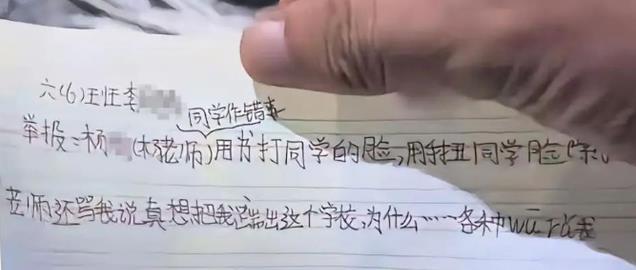 六(6)班任李
同学作错事
举报:杨(杨老师)用书打同学的脸,用手扭同学脸
老师还骂我说真想把我踹出这个学校,为什么……各种wū rǔ我